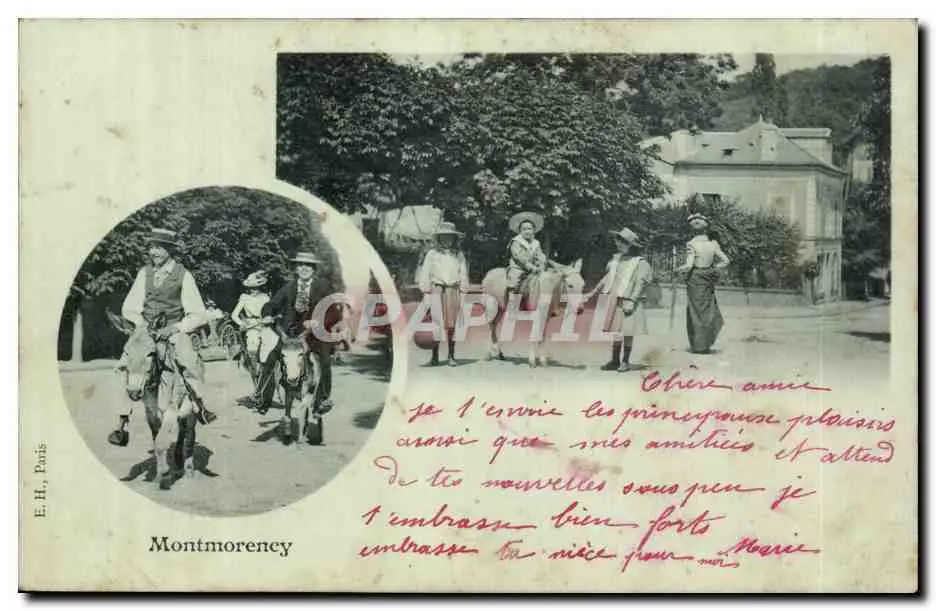 CPAPHIL
E. H., Paris
Montmorency
Chère amie
je t'envoie les principause plaisirs
avosi que mes amitiés et attend
de tes nouvelles sous peu je
t'embrasse bien forts
embrasse ta nièce pour moi Marie